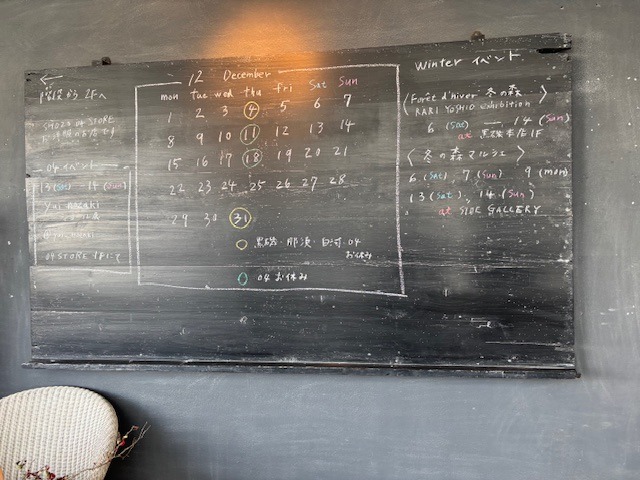 ←
階段から 2Fへ
04 STORE
04 イベント
13 (Sat) 14 (Sun)
yui nozaki
04 STORE 1Fにて
12 December
mon Tue wed thu fri Sat Sun
1 2 3 4 5 6 7
8 9 10 11 12 13 14
15 16 17 18 19 20 21
22 23 24 25 26 27 28
29 30 31
黒磯・那須・白河・04
お休み
04 お休み
Winter イベント
〈Forêt d'hiver 冬の森〉
RARI YOSHIO exhibition
6 (Sat) ― 14 (Sun)
at 黒磯本店1F
〈冬の森マルシェ〉
6 (Sat), 7 (Sun) 9 (mon)
13 (Sat), 14 (Sun)
at GALLERY